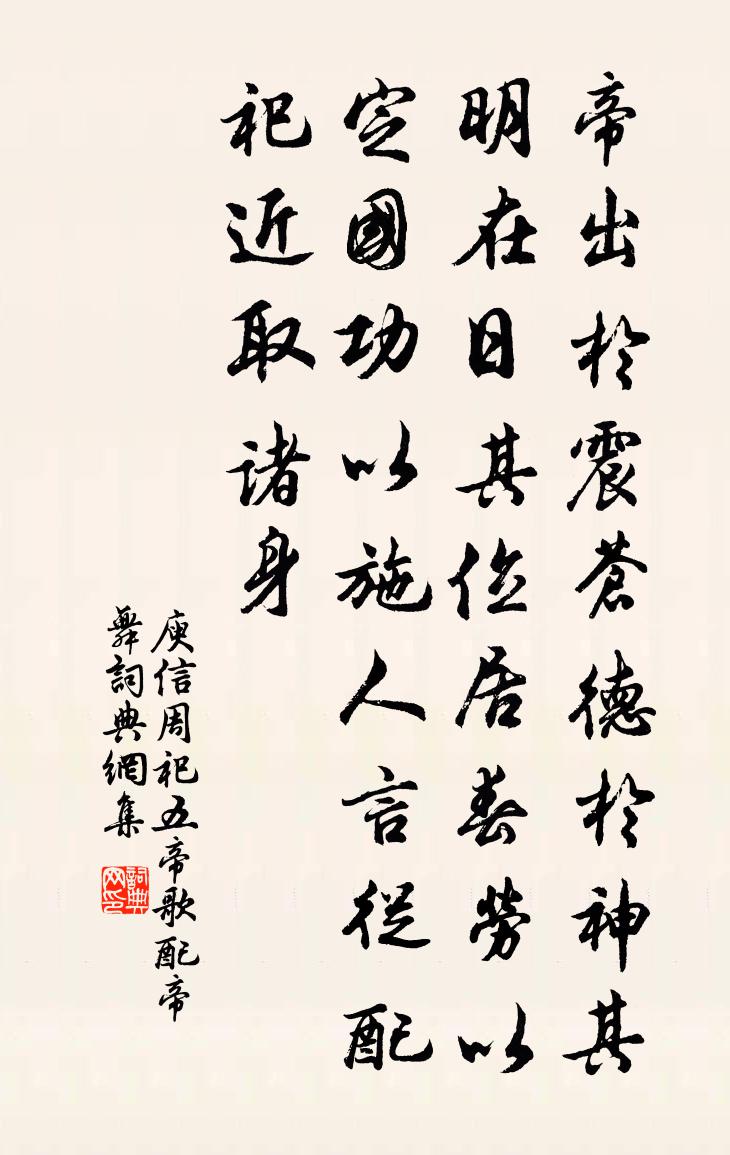 帝出於震蒼德於神其
明在日其位居春勞以
定國功以施人言從配
祀近取諸身
庾信周祀五帝歌配帝
舞詞典網集
詞典网印